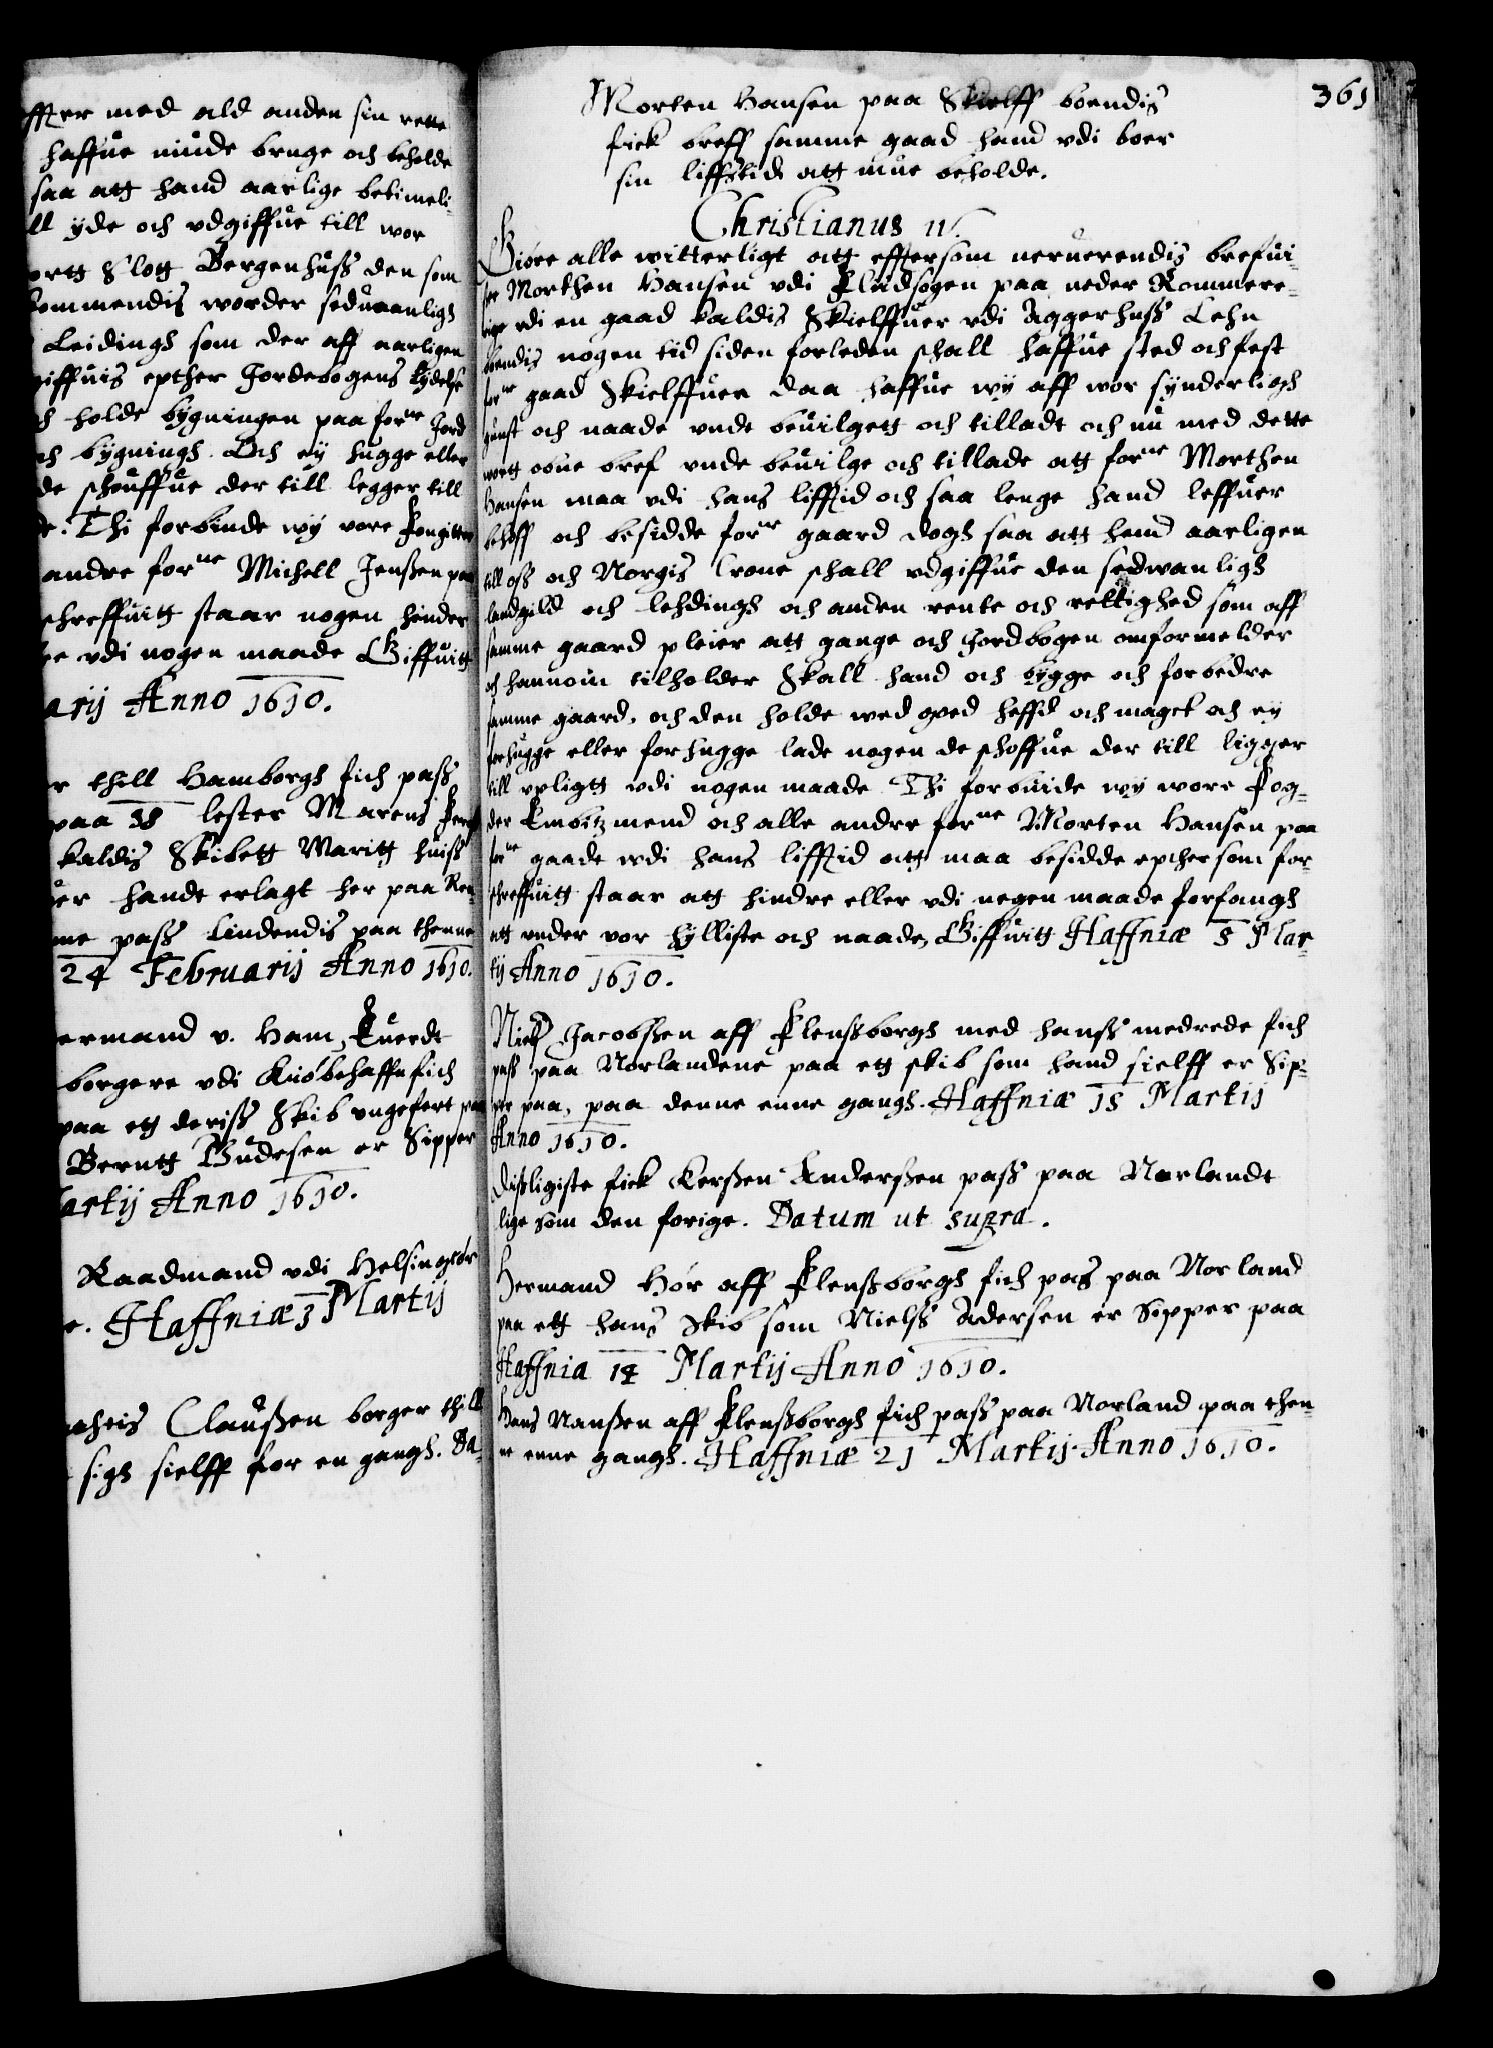 ffter med ald anden sin rette
haffue muide bruge och beholde
saa att hand aarlige betimeli-
ll yde och vdgiffue till wor
ortt Slott Bergenhuss den som
kommendis worder seduaanligh
Leidingh som der aff aarligen
giffuis epther Jordebogens lydelse
h holde bygningen paa forne Jord
ch bygningh. Och ey hugge eller
de schouffue der till legger till
de. Thi forbinde wy vore Fougitter
andre forne Michell Jenssen paa
schreffuitt staar nogen hinder
ge vdi nogen maade Giffuitt
arij Anno 1610.
er thill Hamborgh fich pass
paa 38 lester Marens
kaldis Skibett Maritt huiss
uer handt erlagt her paa Ren-
me pass Lindendis paa thenne
24 Februarij Anno 1610.
ermand v. Ham, Euerdt
borgere vdi Kiøbehaffn fich
paa ett deriss Skib ungefert paa
Berntt Gudesen er Sipper
artij Anno 1610.
Raadmand vdi Helsingør
e. Haffniæ 3 Martij
Claussen borger thill
sigh sielff for en gangh. Da-
361
Morten Hansen paa Skielff boendis
fick breff samme gaad hand vdi boer
sin liffstid att mue beholde.
Christianus IV.
Giøre alle witterligt att efftersom neruerendis brefui-
ser Morthen Hansen vdi Fladsogen paa neder Rommere-
rige vdi en gaad kaldis Skielffuer vdi Aggerhuss Lehn
boendis nogen tid siden forleden schall haffue sted och fest
forne gaad Skielffuer daa haffue wy aff wor synderligh
gunst och naade vnde beuilgett och tilladt och nu med dette
wortt obne bref vnde beuilge och tillade att forne Morthen
Hansen maa vdi hans lifftid och saa lenge hand leffuer
behoff och besidde forne gaard dogh saa att hand aarligen
till oss och Norgis Crone schall vdgiffue den sedwanligh
landgild och lehdingh och anden rente och rettighed som aff
samme gaard pleier att gange och Jordbogen omformelder
och hannom tilholder Skall hand och bygge och forbedre
samme gaard, och den holde wed goed heffd och mag̃t och ey
forhugge eller forhugge lade nogen de schoffue der till ligger
till vpligtt vdi nogen maade Thi forbuide wy wore Fog-
der Embitzmend och alle andre forne Morten Hansen paa
forne gaade wdi hans lifftid att maa besidde epther som for-
schreffuitt staar att hindre eller vdi nogen maade forfangh
att vnder vor hylliste och naade, Giffuitt Haffniæ 8 Mar
tij Anno 1610.
Niels Jacobssen aff Flenssborgh med hanss medrede fich
pass paa Norlandene paa ett skib som hand sielff er Sip-
per paa, paa denne enne gangh. Haffniæ 18 Martij
Anno 1610.
Disligiste fick Kerssen Anderssen pass paa Norlandt
lige som den forige. Datum ut supra.
Hermand Hör aff Flenssborgh fich pas paa Norland
paa ett hans Skib som Nielss Adersen er Sipper paa
Haffnia 14 Martij Anno 1610.
Hans Nanssen aff Flenssborgh fich pass paa Norland paa then-
ne enne gangh. Haffniæ 21 Martij Anno 1610.